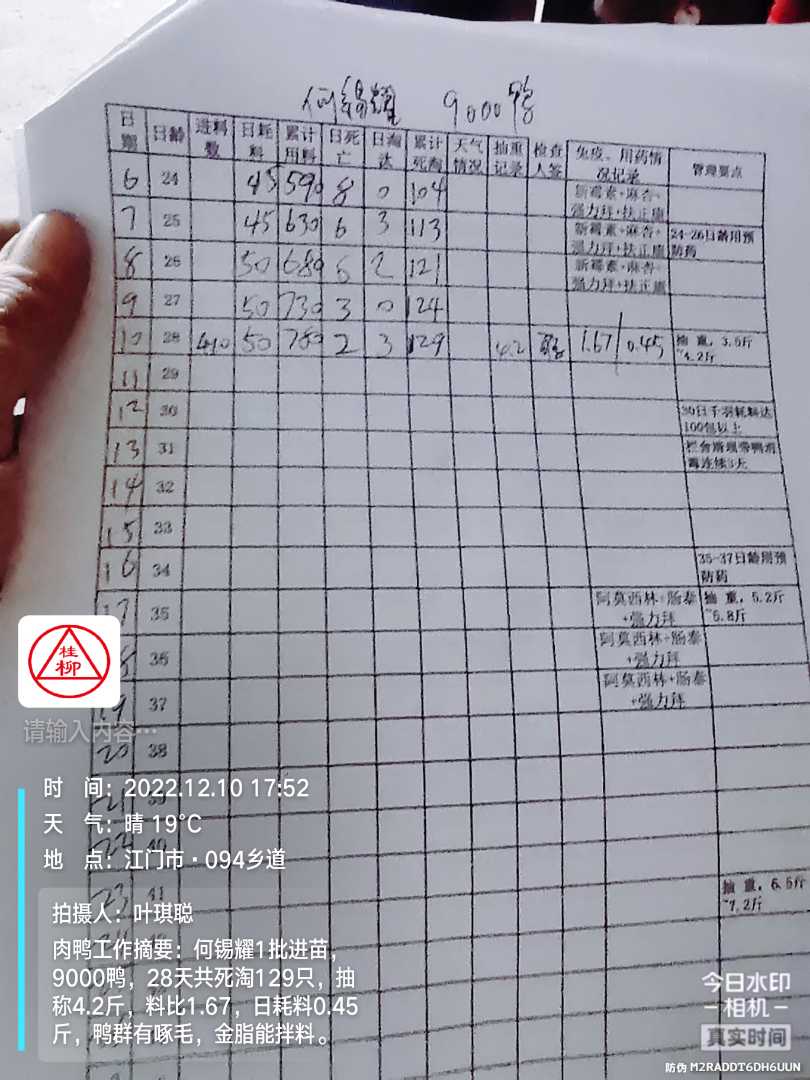 何锡耀 9000鸭
日期 日龄 进料数 日耗料 累计用料 日死亡 日淘汰 累计死淘 天气情况 抽重记录 检查人签 免疫、用药情况记录 管理要点
6 24 45 590 8 0 104 新霉素+麻杏+强力拜+扶正康
7 25 45 630 6 3 113 新霉素+麻杏+强力拜+扶正康 24-26日龄用预防药
8 26 50 680 6 2 121 新霉素+麻杏+强力拜+扶正康
9 27 50 730 3 0 124
10 28 440 50 780 2 3 129 4.2 1.67/0.45 抽重，3.5斤~4.2斤
11 29
12 30 30日千羽耗料达100包以上
13 31 栏舍周围带鸭消毒连续3天
14 32
15 33
16 34 35-37日龄用预防药
17 35 阿莫西林+肠泰+强力拜 抽重，5.2斤~5.8斤
8 36 阿莫西林+肠泰+强力拜
19 37 阿莫西林+肠泰+强力拜
20 38
21 39
22 40
23 41 抽重，6.5斤~7.2斤
桂柳
请输入内容…
时 间：2022.12.10 17:52
天 气：晴 19°C
地 点：江门市·094乡道
拍摄人：叶琪聪
肉鸭工作摘要：何锡耀1批进苗，
9000鸭，28天共死淘129只，抽
称4.2斤，料比1.67，日耗料0.45
斤，鸭群有啄毛，金脂能拌料。
今日水印
相机
真实时间
防伪 M2RADDT6DH6UUN